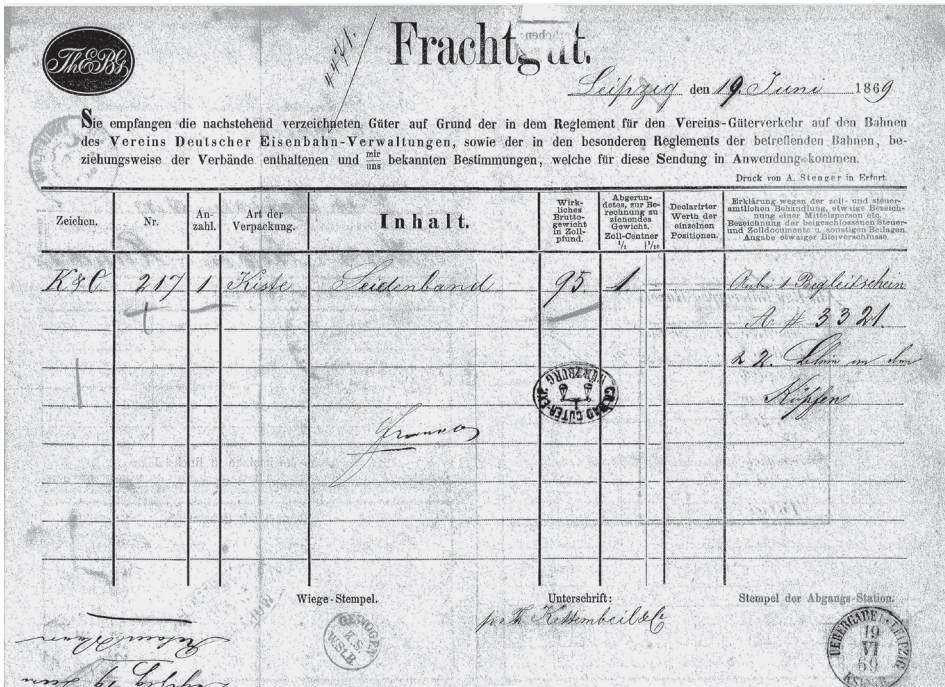 ThEBG
4471.
Frachtgut.
Leipzig den 19. Juni 1869
Sie empfangen die nachstehend verzeichneten Güter auf Grund der in dem Reglement für den Vereins-Güterverkehr auf den Bahnen
des Vereins Deutscher Eisenbahn-Verwaltungen, sowie der in den besonderen Reglements der betreffenden Bahnen, be-
ziehungsweise der Verbände enthaltenen und mir/uns bekannten Bestimmungen, welche für diese Sendung in Anwendung kommen.
Druck von A. Stenger in Erfurt.
Zeichen.
Nr.
An-
zahl.
Art der
Verpackung.
Inhalt.
Wirk-
liches
Brutto-
gewicht
in Zoll-
pfund.
Abgerun-
detes, zur Be-
rechnung zu
ziehendes
Gewicht.
Zoll-Centner
1/1 1/10
Declarirter
Werth der
einzelnen
Positionen.
Erklärung wegen der zoll- und steuer-
amtlichen Behandlung, etwaige Bezeich-
nung einer Mittelsperson etc.
Bezeichnung der beigeschlossenen Steuer-
und Zolldocumente u. sonstigen Beilagen.
Angabe etwaiger Bleiverschlüsse.
K & C. 217 1 Kiste Seidenband 95 1 1 Begleitschein
A # 3321.
2 an den
Köpfen
GR. BAD GÜTER-EXP.
WÜRZBURG
Wiege-Stempel.
Unterschrift:
Stempel der Abgangs-Station.
GEWOGEN
K. S.
W. St. B.
Kettembeil & Co
UEBERGABE LEIPZIG
19
VI
69